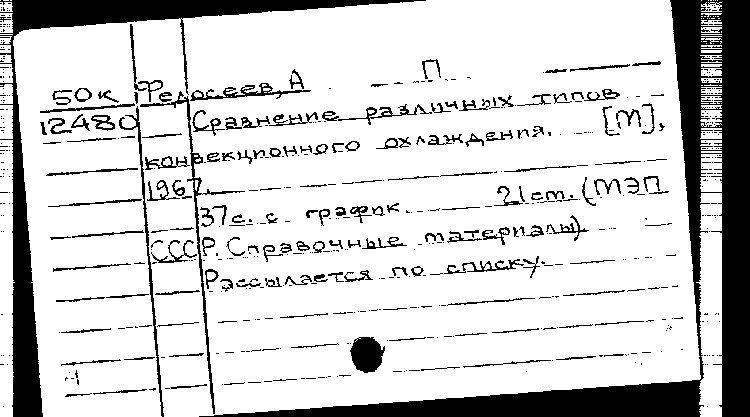 П
50к Федосеев, А
12480 Сравнение различных типов
конвекционного охлаждения. [М],
1967.
37с. с график. 21см. (МЭП
СССР. Справочные материалы).
Рассылается по списку.